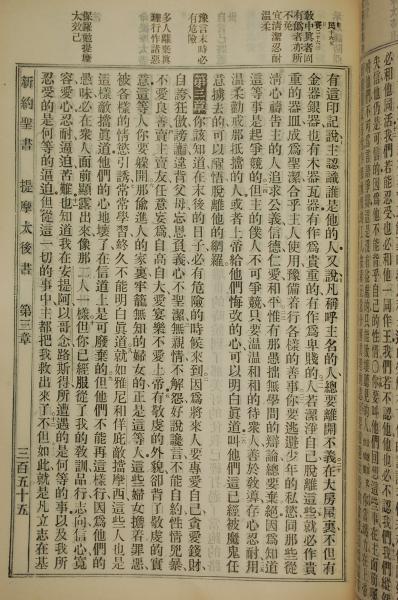 必和他同活我們若能忍受也必和他一同作王我們若不認他他也必不認我們我們縱
失信他仍是可信的因爲他不能背乎自己
有這印記說主認識誰是他的人又說凡稱呼主名的人總要離開不義在大房屋裏不但有
金器銀器也有木器瓦器有作爲貴重的有作爲卑賤的人若潔淨自己脫離這些就必作貴
重的器皿成爲聖潔合乎主人使用豫備着行各樣的善事你要逃避少年的私慾同那些從
清心禱告主的人追求公義信德仁愛和平惟有那愚拙無學問的辯論總要棄絕因爲知道
這等事是起爭競的但主的僕人不可爭競只要溫溫和和的待衆人善於敎導存心忍耐用
溫柔勸戒那抵擋的人或者上帝給他們悔改的心可以明白眞道叫他們這已經被魔鬼任
意擄去的可以醒悟脫離他的網羅
第三章 你該知道在末後的日子必有危險的時候來到因爲將來人要專愛自己貪愛錢財
自誇狂傲謗讟違背父母忘恩負義心不聖潔無親情不解怨好說讒言不能自約性情兇暴
不愛良善賣主賣友任意妄爲自高自大愛宴樂不愛上帝有敬虔的外貌卻背了敬虔的實
意這等人你要躱開那偷進人的家裏牢籠無知的婦女的正是這等人這些婦女擔着罪惡
被各樣的情慾引誘常常學習終久不能明白眞道就如雅尼和佯庇敵擋摩西這些人也是
這樣敵擋眞道他們的心地壞了在信道上是可廢棄的但他們不能再這樣行因爲他們的
愚昧必在衆人面前顯露出來像那二人一樣但你已經服從了我的敎訓品行志向信心寬
容愛心忍耐逼迫苦難也知道我在安提阿以哥念路斯得所遭遇的是何等的事以及我所
忍受的是何等的逼迫但從這一切的事中主都把我救出來了不但如此就是凡立志在基
宜清潔忍耐
溫柔
豫言末時必
有危險
多人
理行作諸惡
保羅勉提摩
太效己
新約聖書 提摩太後書 第三章 三百五十五